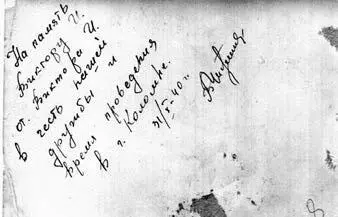 На память
Виктору И.
от Виктора И.
в честь нашей
дружбы и
время проведения
в г. Коломне.
40 г.